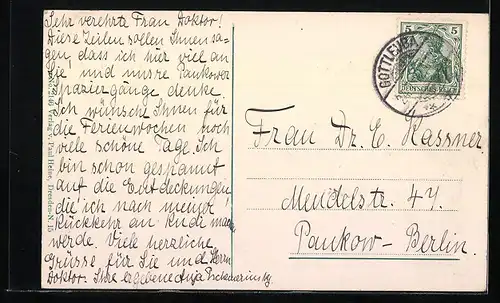 Sehr verehrte Frau Doktor!
Diese Zeilen sollen Ihnen sa-
gen, dass ich hier viel an
Sie und unsre Pankower
Spaziergänge denke.
Ich wünsche Ihnen für
die Ferienwochen noch
viele schöne Tage. Ich
bin schon gespannt
auf die Entdeckungen
die ich nach meiner
Rückkehr an machen
werde. Viele herzliche
Grüsse für Sie und Herrn
Doktor. Ihre ergebene Anja
Verlag v. Paul Heine, Dresden-N. 15
5 5
DEUTSCHES REICH
GOTTLEUBA
Frau Dr. E. Kassner
Mendelstr. 47.
Pankow-Berlin.